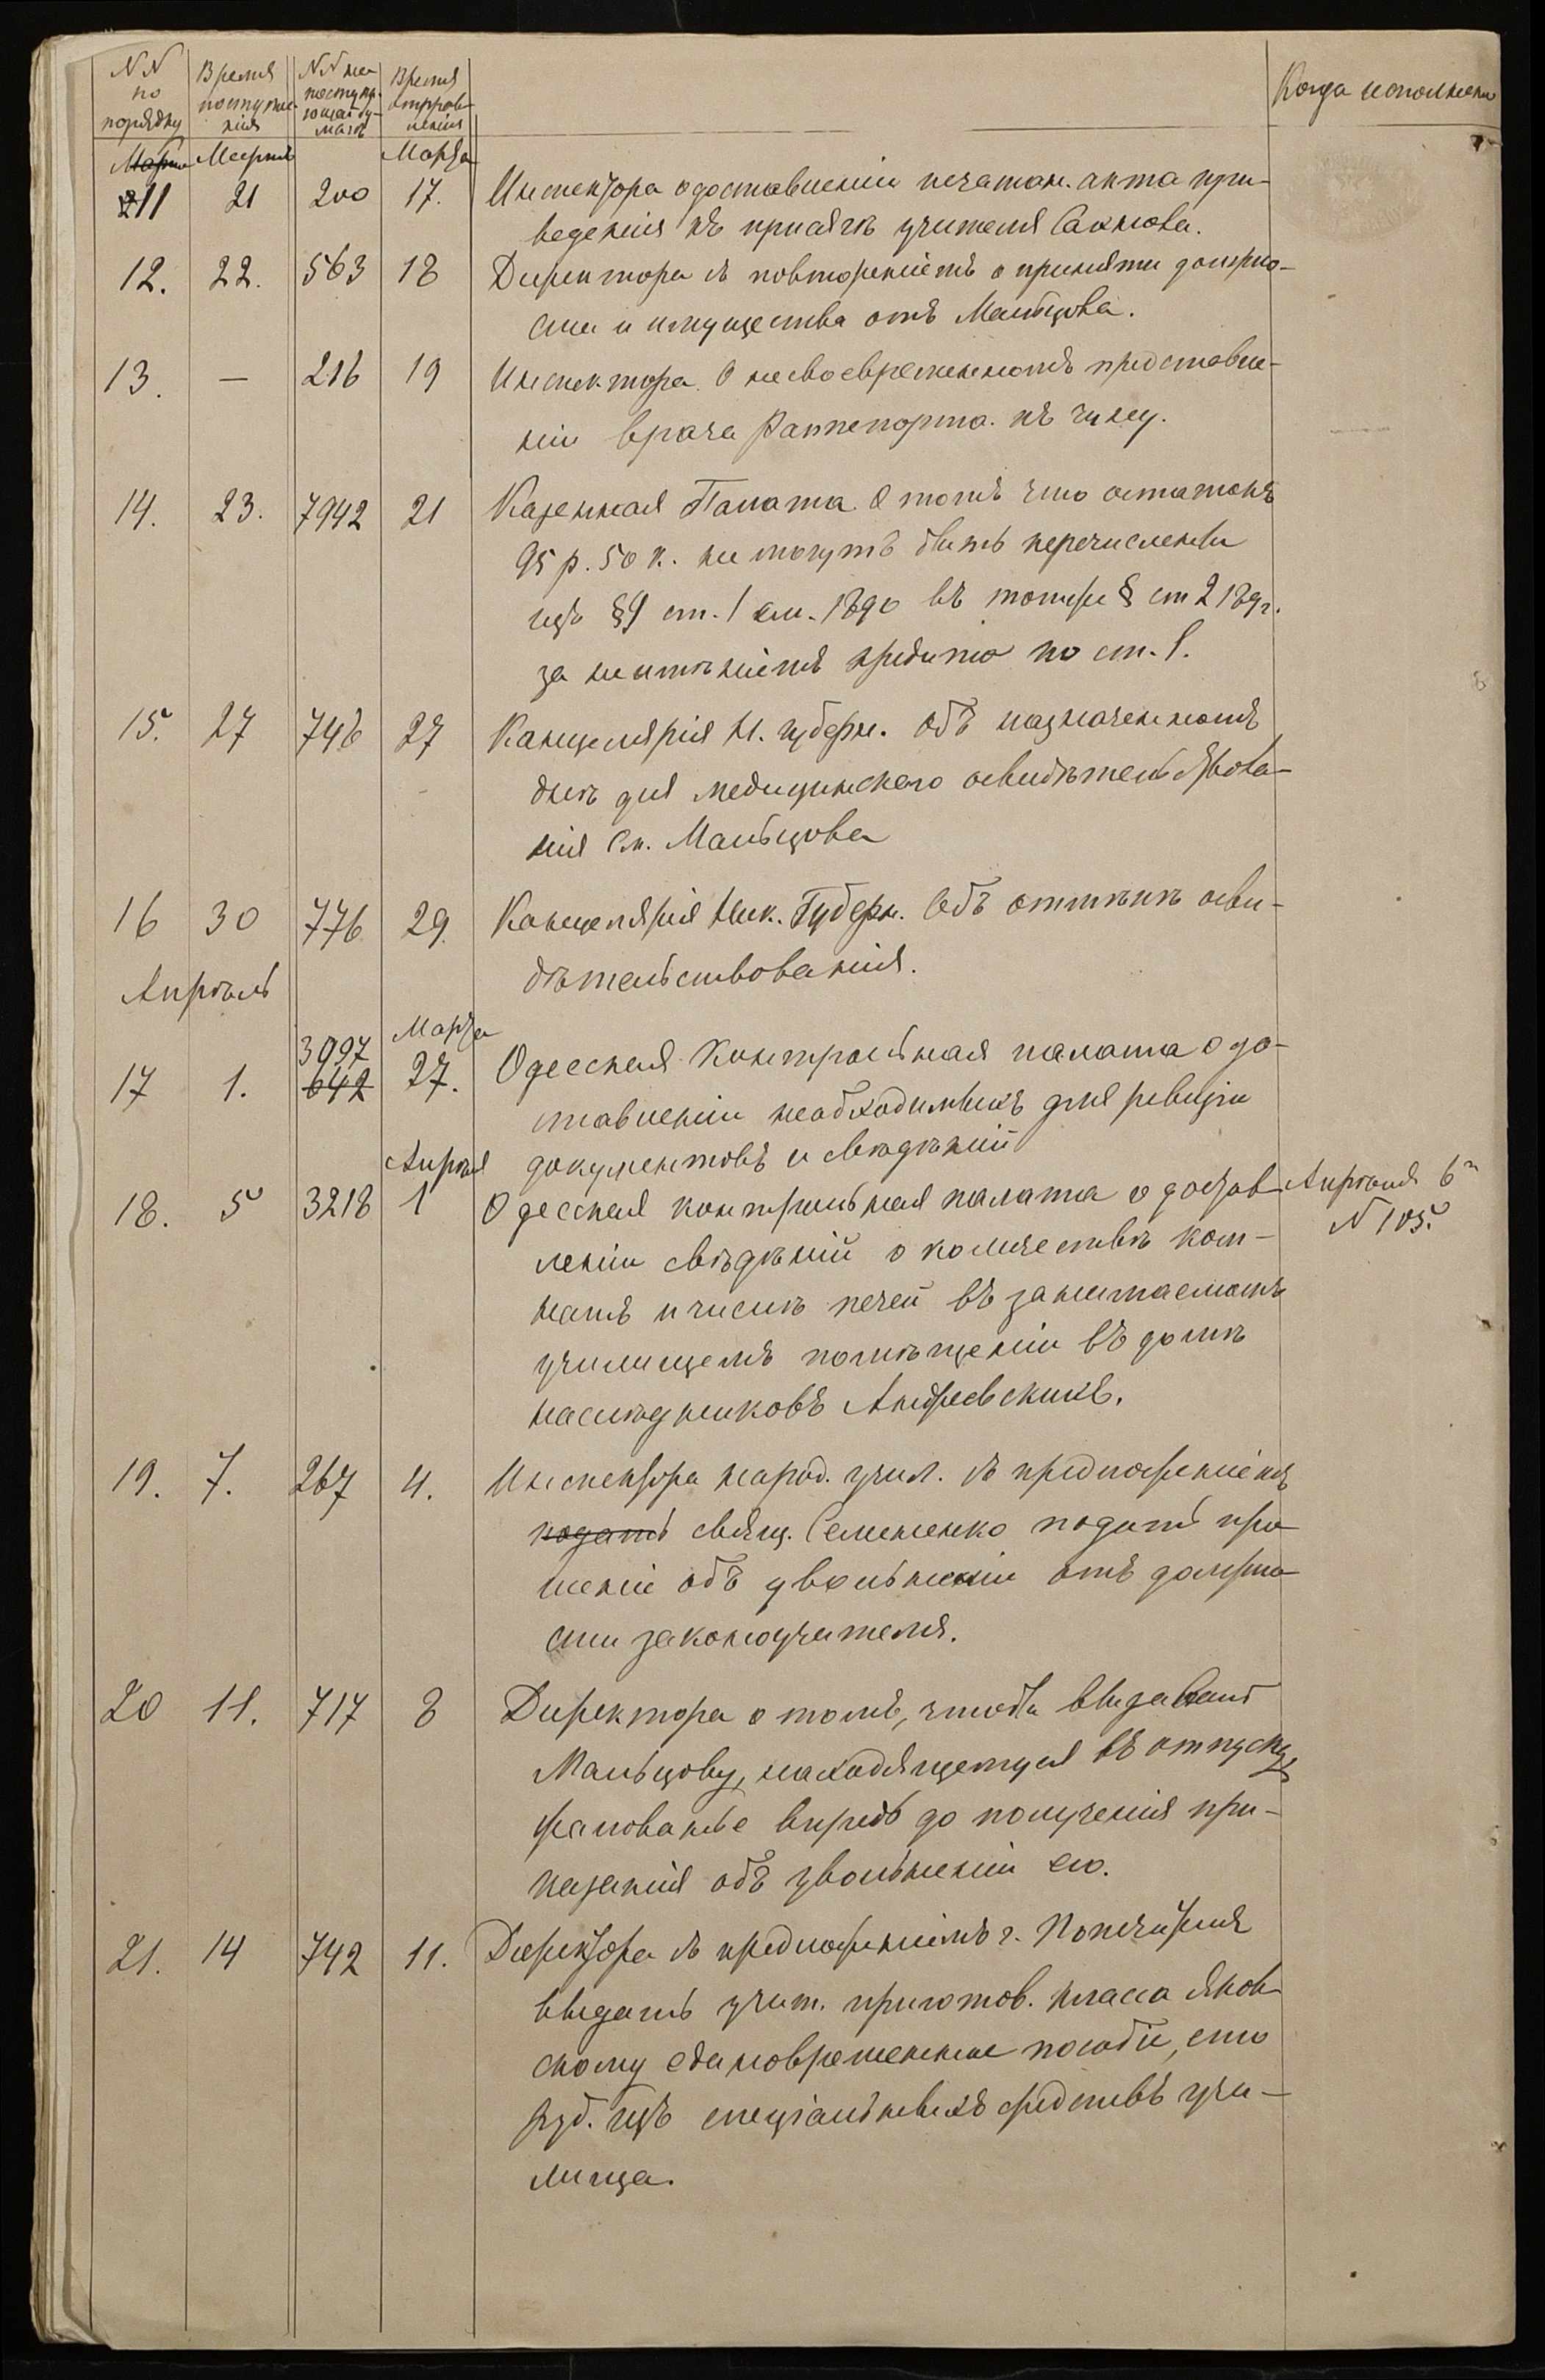 NN по порядку | Время поступле- нія | NN на поступа- ющей бу- магѣ | Время отправ- ленія | Когда исполнена
Мартъ Марта
11 21 200 17. Инспектора о доставленіи печатан. акта при-
веденія къ присягѣ учителя
12. 22. 563 18 Директора съ повтореніемъ о принятіи должно-
сти и имущества отъ Мальцова.
13. — 216 19 Инспектора. О несвоевременномъ представле-
ніи врача Раппепорта къ чину.
14. 23. 7942 21 Казенная Палата. О томъ что остатокъ
95 р. 50 к. не могутъ быть перечислены
изъ § 9 ст. 1 см. 1890 въ тотже § ст 2
за неимѣніемъ кредита по ст. 1.
15. 27 746 27 Канцелярія Н. губерн. объ назначенномъ
днѣ для медицинскаго освидѣтельствова-
нія См. Мальцова
16 30 776 29. Канцелярія Ник. Губерн. Объ отмѣнѣ осви-
дѣтельствованія.
Апрѣль
Марта
3997
17 1. 642 27. Одесская Контрольная палата о до-
ставленіи необходимыхъ для ревизіи
Апрѣля документовъ и свѣдѣній
18. 5 3218 1 Одесская контрольная палата о достав- Апрѣля 6го
леніи свѣдѣній о количествѣ ком- N 105.
натъ и числѣ печей въ занимаемомъ
училищемъ помѣщеніи въ домѣ
наслѣдниковъ Андреевскихъ.
19. 7. 267 4. Инспектора народ. учил. съ предложеніемъ
подать свящ. Семененко подать про-
шеніе объ увольненіи отъ должно-
сти законоучителя.
20 11. 717 8 Директора о томъ, чтобы выдавать
Мальцову, находящемуся въ отпуску
жалованье впредь до полученія при-
казанія объ увольненіи его.
21. 14 742 11. Директора съ предложеніемъ г. Попечителя
выдать учит. приготов. класса Яков-
скому единовременное пособіе, сто
руб. изъ спеціальныхъ средствъ учи-
лища.